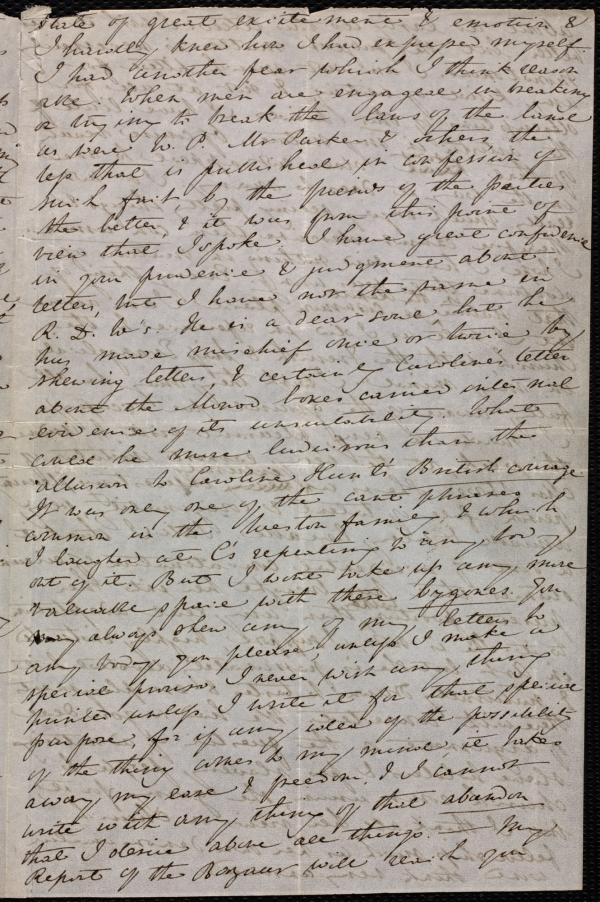 state of great excitement & emotion &
I hardly knew how I had expressed myself.
I had another fear which I think reason
able. When men are engaged in breaking
or trying to break the laws of the land
as were W. P. Mr Parker & others the
less that is published in confession of
such fact, by the friends of the parties
the better, & it was from this point of
view that I spoke. I have great confidence
in your prudence & judgment about
letters, but I have not the same in
R. D. W's. He is a dear soul but he
has made mischief once or twice by
shewing letters, & certainly Caroline's letter
about the Monod boxes carried internal
evidence of its unsuitability. What
could be more ludicrous than the
allusion to Caroline Hunt's British courage
It was only one of the cant phrases
common in the Weston family & which
I laughed at C's repeating to any body
out of it. But I wont take up any more
valuable space with these bygones. You
may always shew any of my letters to
any body you please unless I make a
special proviso. I never wish any thing
printed unless I write it for that special
purpose, for if any idea of the possibility
of the thing comes to my mind it takes
away my ease & freedom. & I cannot
write with any thing of that abandon
that I desire above all things. — My
Report of the Bazaar will reach you